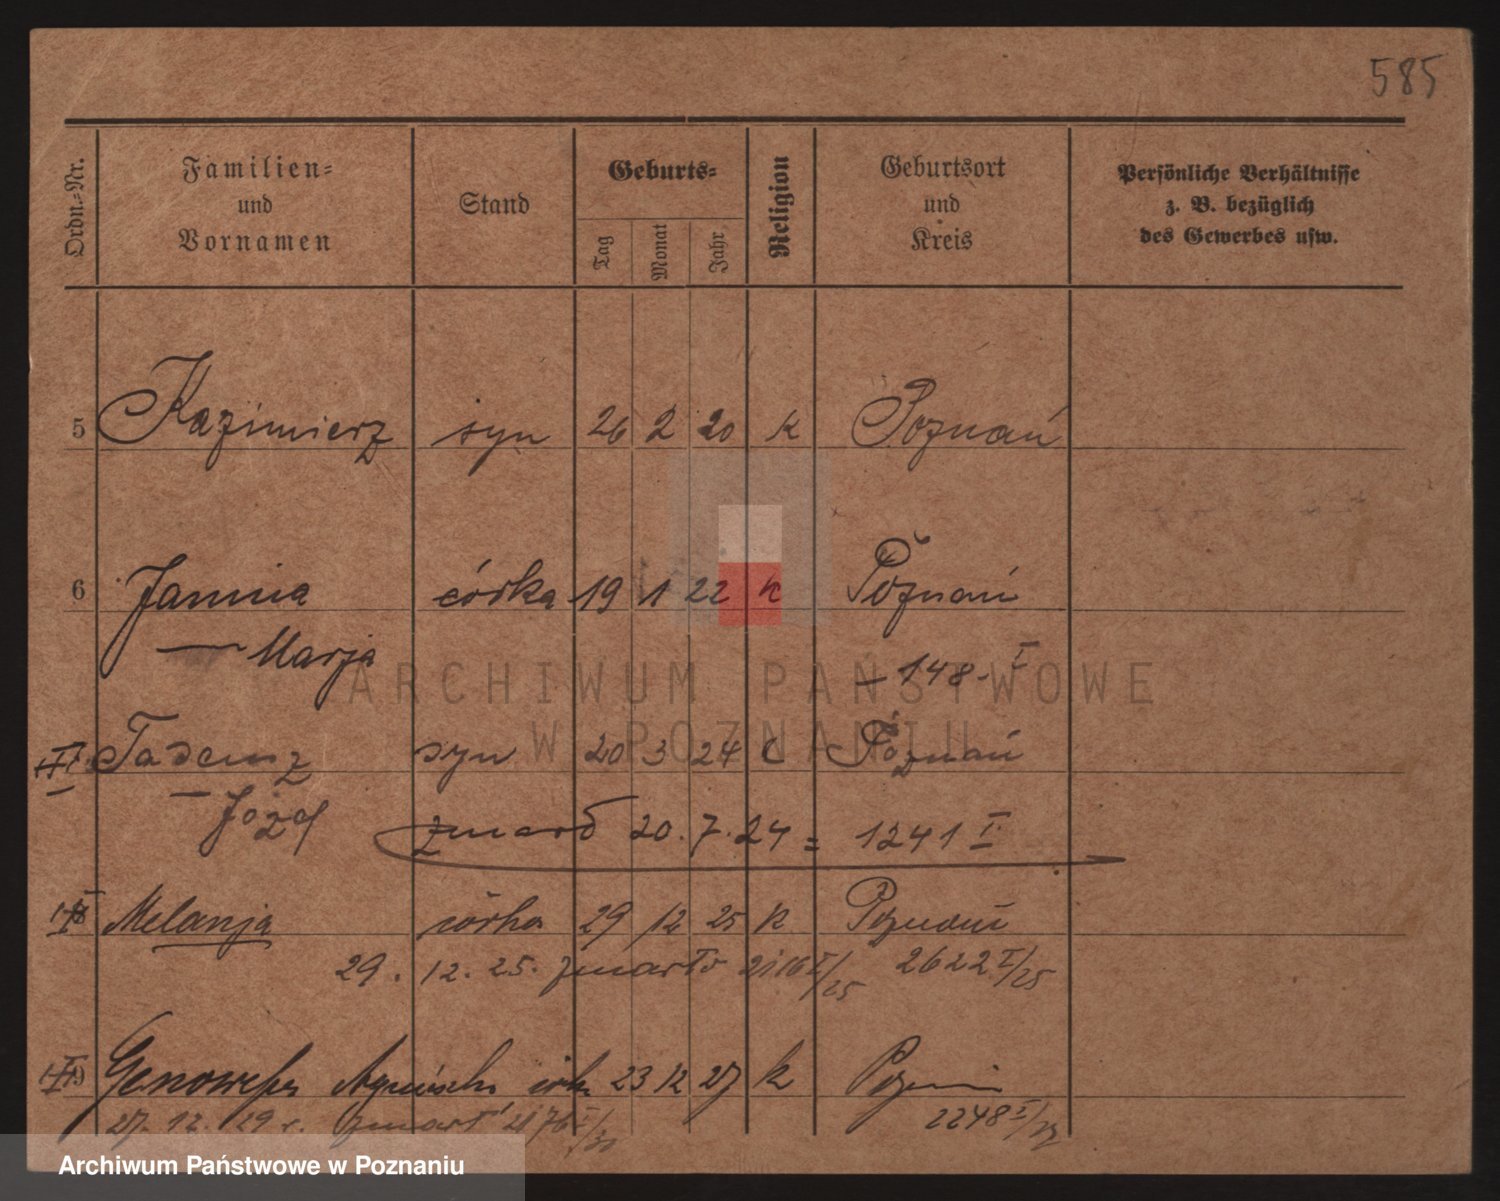 585
Ordn.-Nr.
Familien-
und
Vornamen
Stand
Geburts-
Tag
Monat
Jahr
Religion
Geburtsort
und
Kreis
Persönliche Verhältnisse
z. B. bezüglich
des Gewerbes usw.
5 Kazimierz syn 26 2 20 k Poznań
6 Janina córka 19 1 22 k Poznań
— Marja — 148 - I
ARCHIWUM PAŃSTWOWE
W POZNANIU
7 Tadeusz syn 20 3 24 Poznań
— Józef
zmarł 20. 7. 24 = 1241 I
8 Melanja córka 29 12 25 k Poznań
29. 12. 25. zmarła I/25 2622 I/25
9 Genowefa 23 12 27 k
27. 12. 29 r. zmarł 2248 I/27
Archiwum Państwowe w Poznaniu